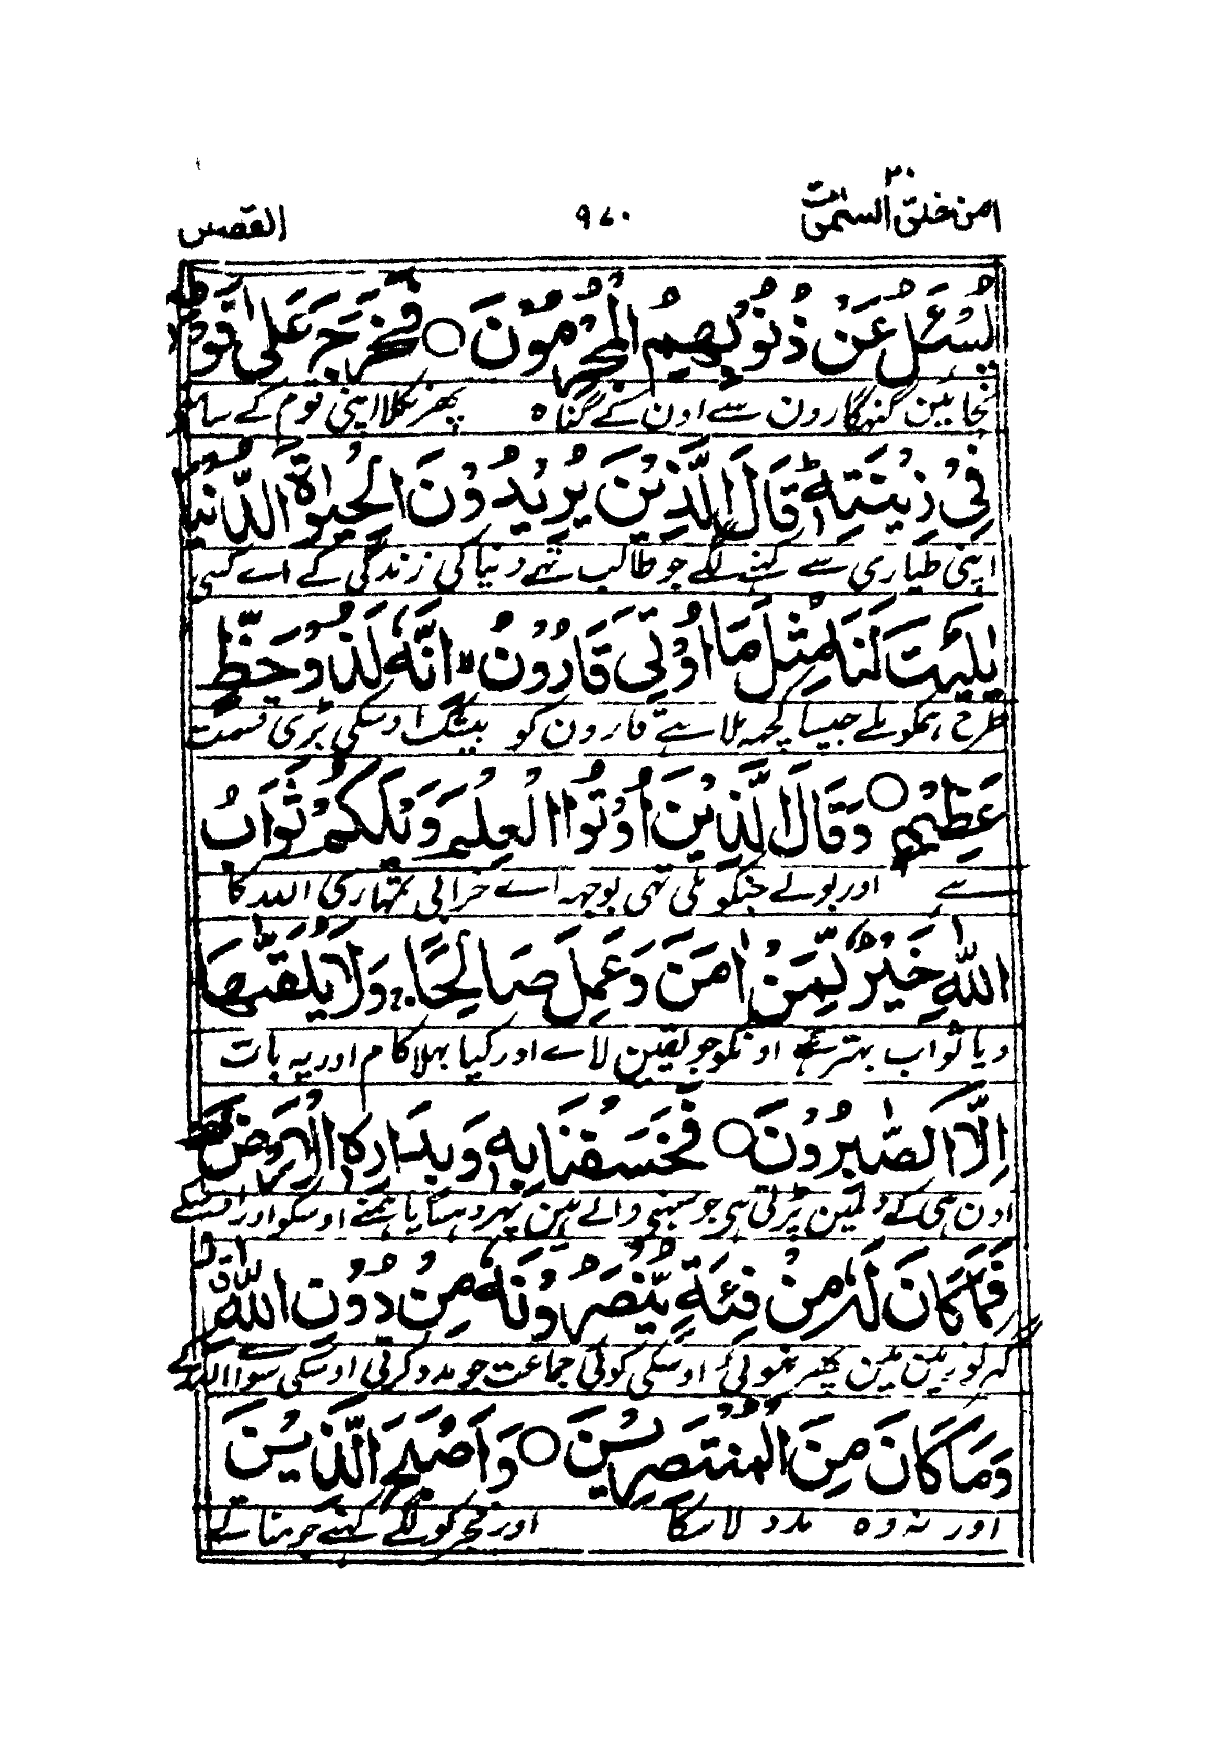 امن خلق السمٰوٰت ٢٠ ٩٧٠ القصص
يُسْـَٔلُ عَنْ ذُنُوْبِهِمُ الْمُجْرِمُوْنَ ○ فَخَرَجَ عَلٰى قَوْمِهٖ
گنہگارون سے اون کے گناہ پھر نکلا اپنی قوم کے سامنے
فِيْ زِيْنَتِهٖ ؕ قَالَ الَّذِيْنَ يُرِيْدُوْنَ الْحَيٰوةَ الدُّنْيَا
اپنی طیاری سے کہنے لگے جو طالب تھے دنیا کی زندگی کے اے کسی
يٰلَيْتَ لَنَا مِثْلَ مَا اُوْتِيَ قَارُوْنُ ۙ اِنَّهٗ لَذُوْ حَظٍّ
طرح ہمکو ملے جیسا کچھہ ملا ہے قارون کو بیشک اوسکی بڑی قسمت
عَظِيْمٍ ○ وَقَالَ الَّذِيْنَ اُوْتُوا الْعِلْمَ وَيْلَكُمْ ثَوَابُ
ہے اور بولے جنکو ملی تھی بوجھہ اے خرابی تمہاری اللہ کا
اللّٰهِ خَيْرٌ لِّمَنْ اٰمَنَ وَعَمِلَ صَالِحًا ۚ وَلَا يُلَقّٰىهَا
دیا ثواب بہتر ہے اونکو جو یقین لائے اور کیا بھلا کام اور یہ بات
اِلَّا الصّٰبِرُوْنَ ○ فَخَسَفْنَا بِهٖ وَبِدَارِهِ الْاَرْضَ
اون ہی کے دلمین پڑتی ہی جو سہنے والے ہین پھر دہسایا ہمنے اوسکو اور اوسکے
فَمَا كَانَ لَهٗ مِنْ فِئَةٍ يَّنْصُرُوْنَهٗ مِنْ دُوْنِ اللّٰهِ ق
گھر کو زمین مین پھر نہوئی اوسکی کوئی جماعت جو مدد کرتی اوسکی سوا اللہ کے
وَمَا كَانَ مِنَ الْمُنْتَصِرِيْنَ ○ وَاَصْبَحَ الَّذِيْنَ
اور نہ وہ مدد لا سکا اور فجر کو لگے کہنے جو مناتے